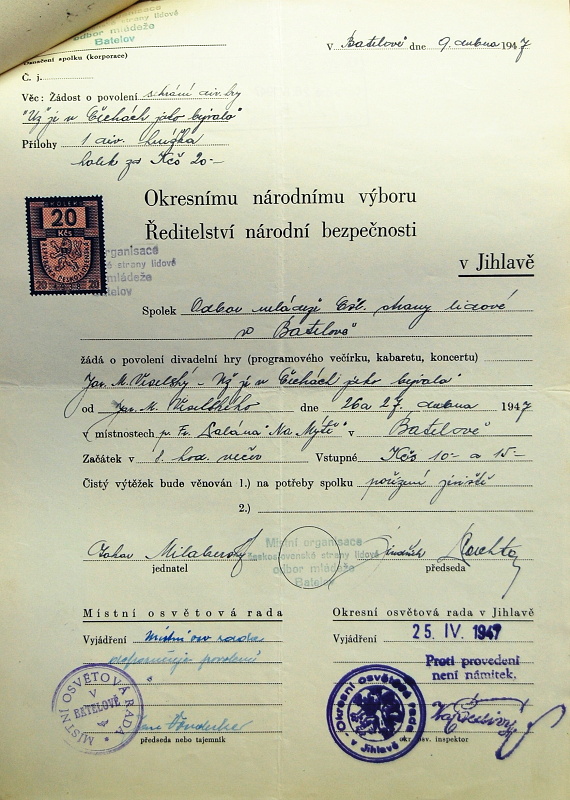 organisace
strany lidové
odbor mládeže
Batelov
Označení spolku (korporace)
V Batelově dne 9. dubna 1947
Č. j.
Věc: Žádost o povolení sehrání div. hry
"Už je v Čechách jako bývalo"
Přílohy 1 div. knížka
kolek za Kčs 20.-
Okresnímu národnímu výboru
Ředitelství národní bezpečnosti
v Jihlavě
20
Kčs
20 20
organisace
strany lidové
mládeže
Batelov
Spolek Odbor mládeže Čsl. strany lidové
v Batelově
žádá o povolení divadelní hry (programového večírku, kabaretu, koncertu)
Jar. M. Veselský - Už je v Čechách jako bývalo"
od Jar. M. Veselského dne 26 a 27. dubna 1947
v místnostech p. Fr. "Na Mýtě" v Batelově
Začátek v 8. hod. večer Vstupné Kčs 10- a 15-
Čistý výtěžek bude věnován 1.) na potřeby spolku pořízení jeviště
2.)
Místní organisace
Československé strany lidové
odbor mládeže
Batelov
jednatel předseda
Místní osvětová rada
Vyjádření Místní osv rada
doporučuje povolení
MÍSTNÍ OSVĚTOVÁ RADA
V
BATELOVĚ
předseda nebo tajemník
Okresní osvětová rada v Jihlavě
Vyjádření 25. IV. 1947
Proti provedení
není námitek.
Okresní osvětová rada
v Jihlavě
okr. osv. inspektor